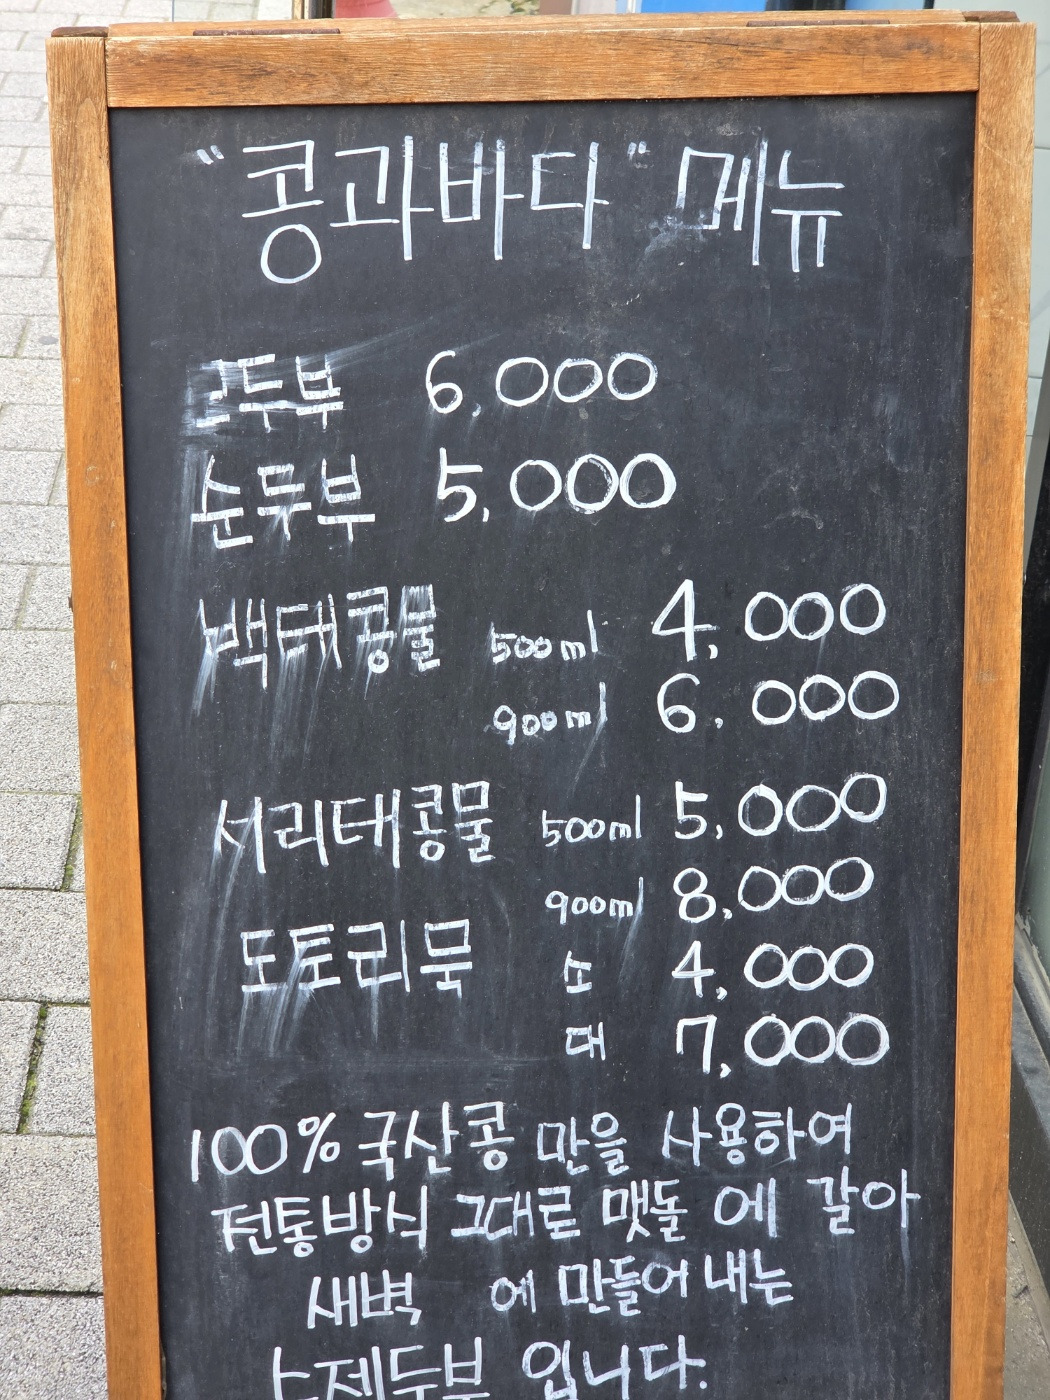 "콩과바다" 메뉴
모두부 6,000
순두부 5,000
백태콩물 500ml 4,000
900ml 6,000
서리태콩물 500ml 5,000
900ml 8,000
도토리묵 소 4,000
대 7,000
100% 국산콩 만을 사용하여
전통방식 그대로 맷돌 에 갈아
새벽 에 만들어 내는
수제두부 입니다.